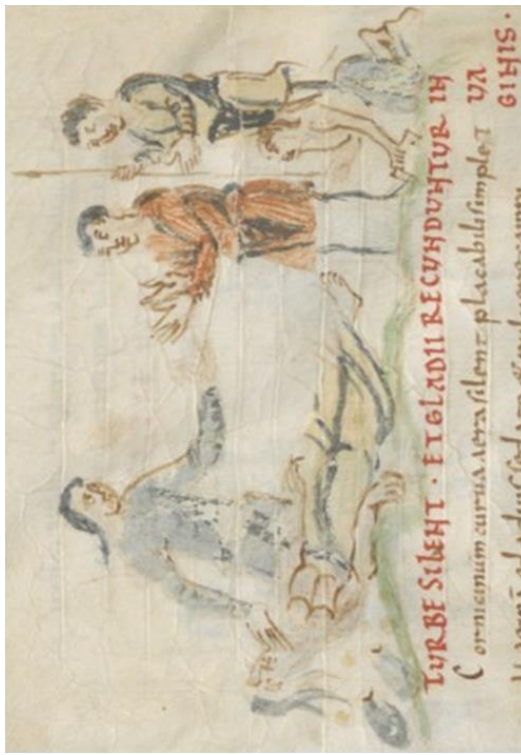 TURBE SILENT · ET GLADII RECUNDUNTUR IN
UA
GINIS ·
Cornicinum curua aera silent placabilis implet